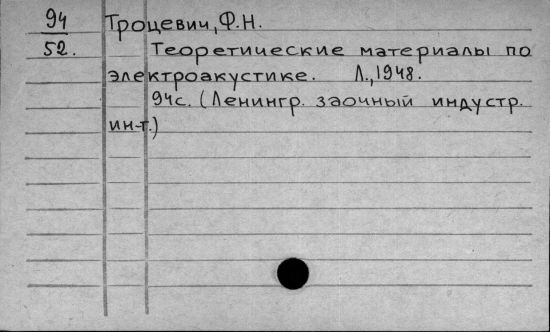 94 Троцевич, Ф.Н.
52. Теоретические материалы по
электроакустике. Л., 1948.
94с. (Ленингр. заочный индустр.
ин-т.)